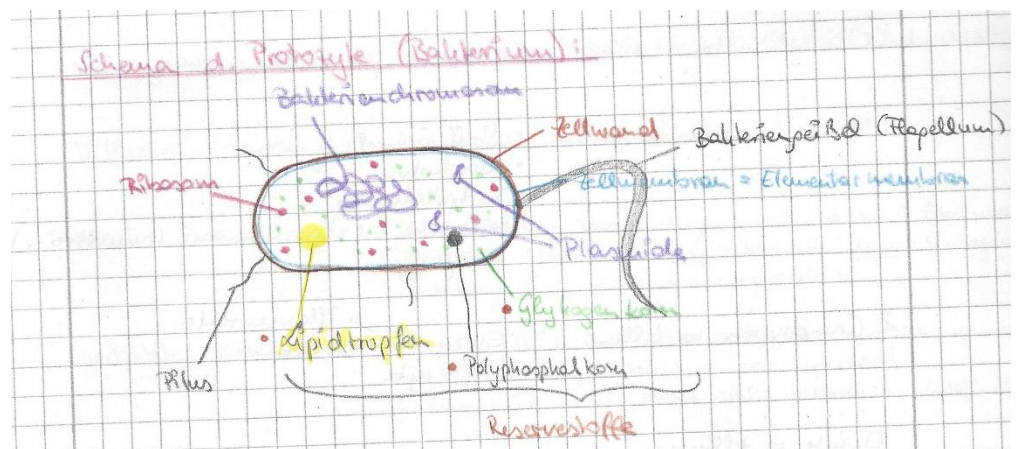 Schema d. Protozyte (Bakterium):
Bakterienchromosom
Zellwand
Bakteriengeißel (Flagellum)
Ribosom
Zellmembran = Elementarmembran
Plasmide
Glykogenkorn
Lipidtropfen
Polyphosphatkorn
Pilus
Reservestoffe